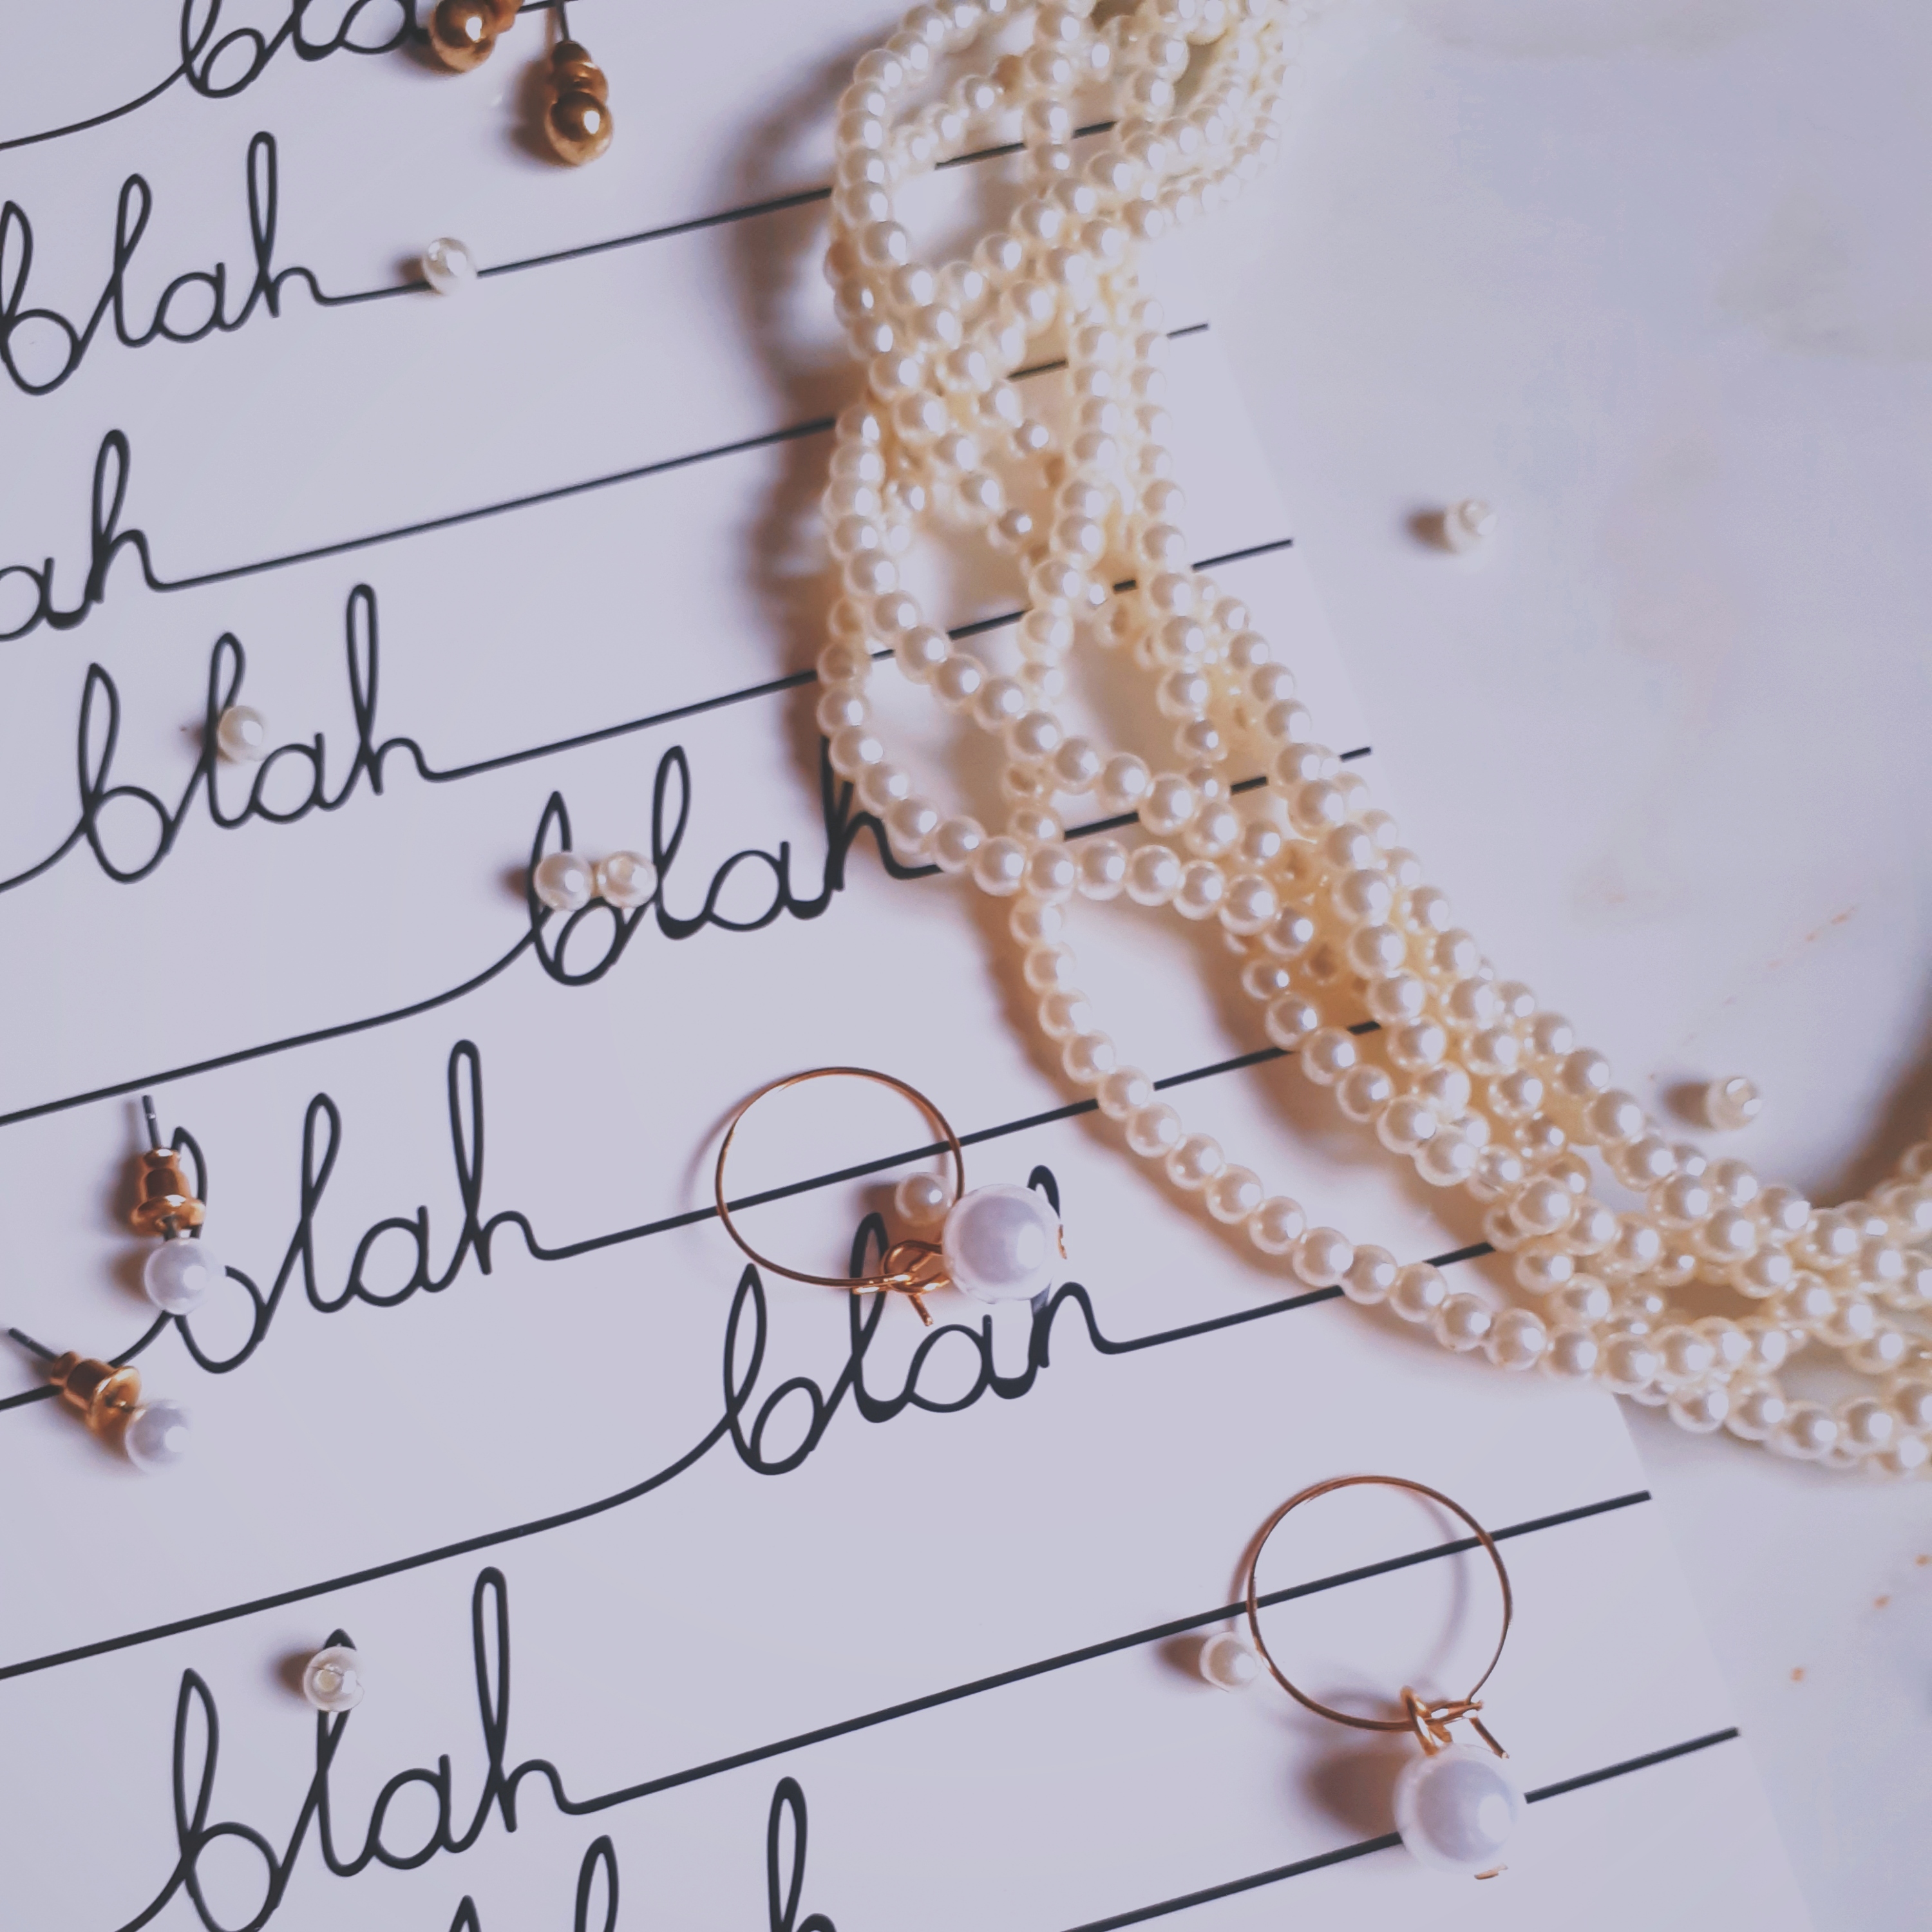 bla
blah
ah
blah
blah
blah
blah
blah
blah